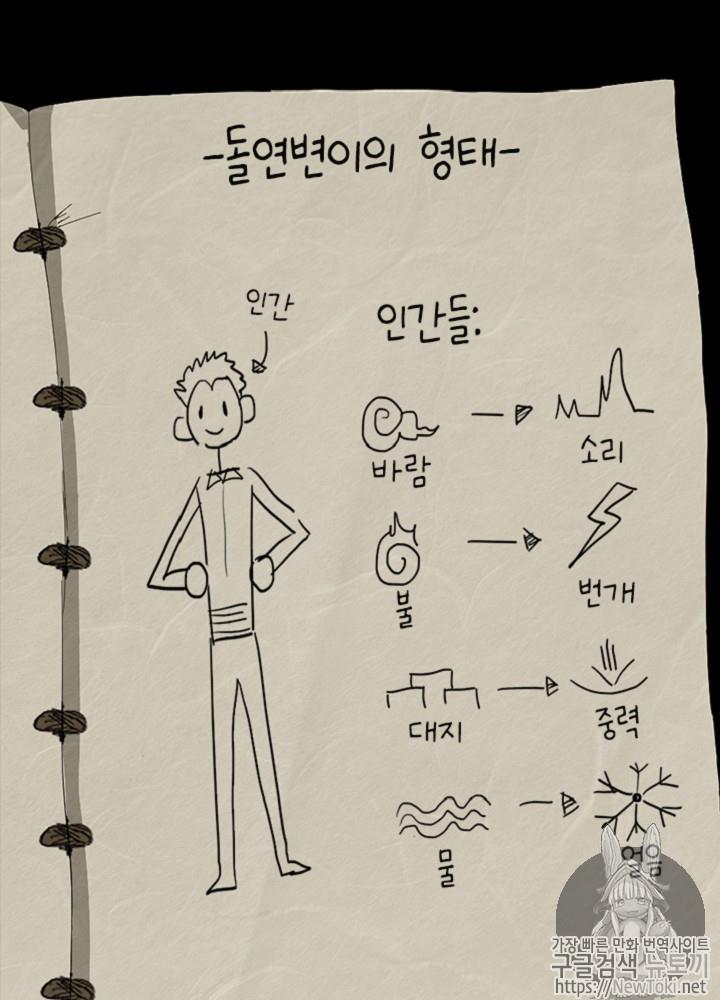 -돌연변이의 형태-
인간
인간들:
바람
소리
불
번개
대지
중력
물
얼음
가장 빠른 만화 번역사이트
구글검색 뉴토끼
https://NewToki.net